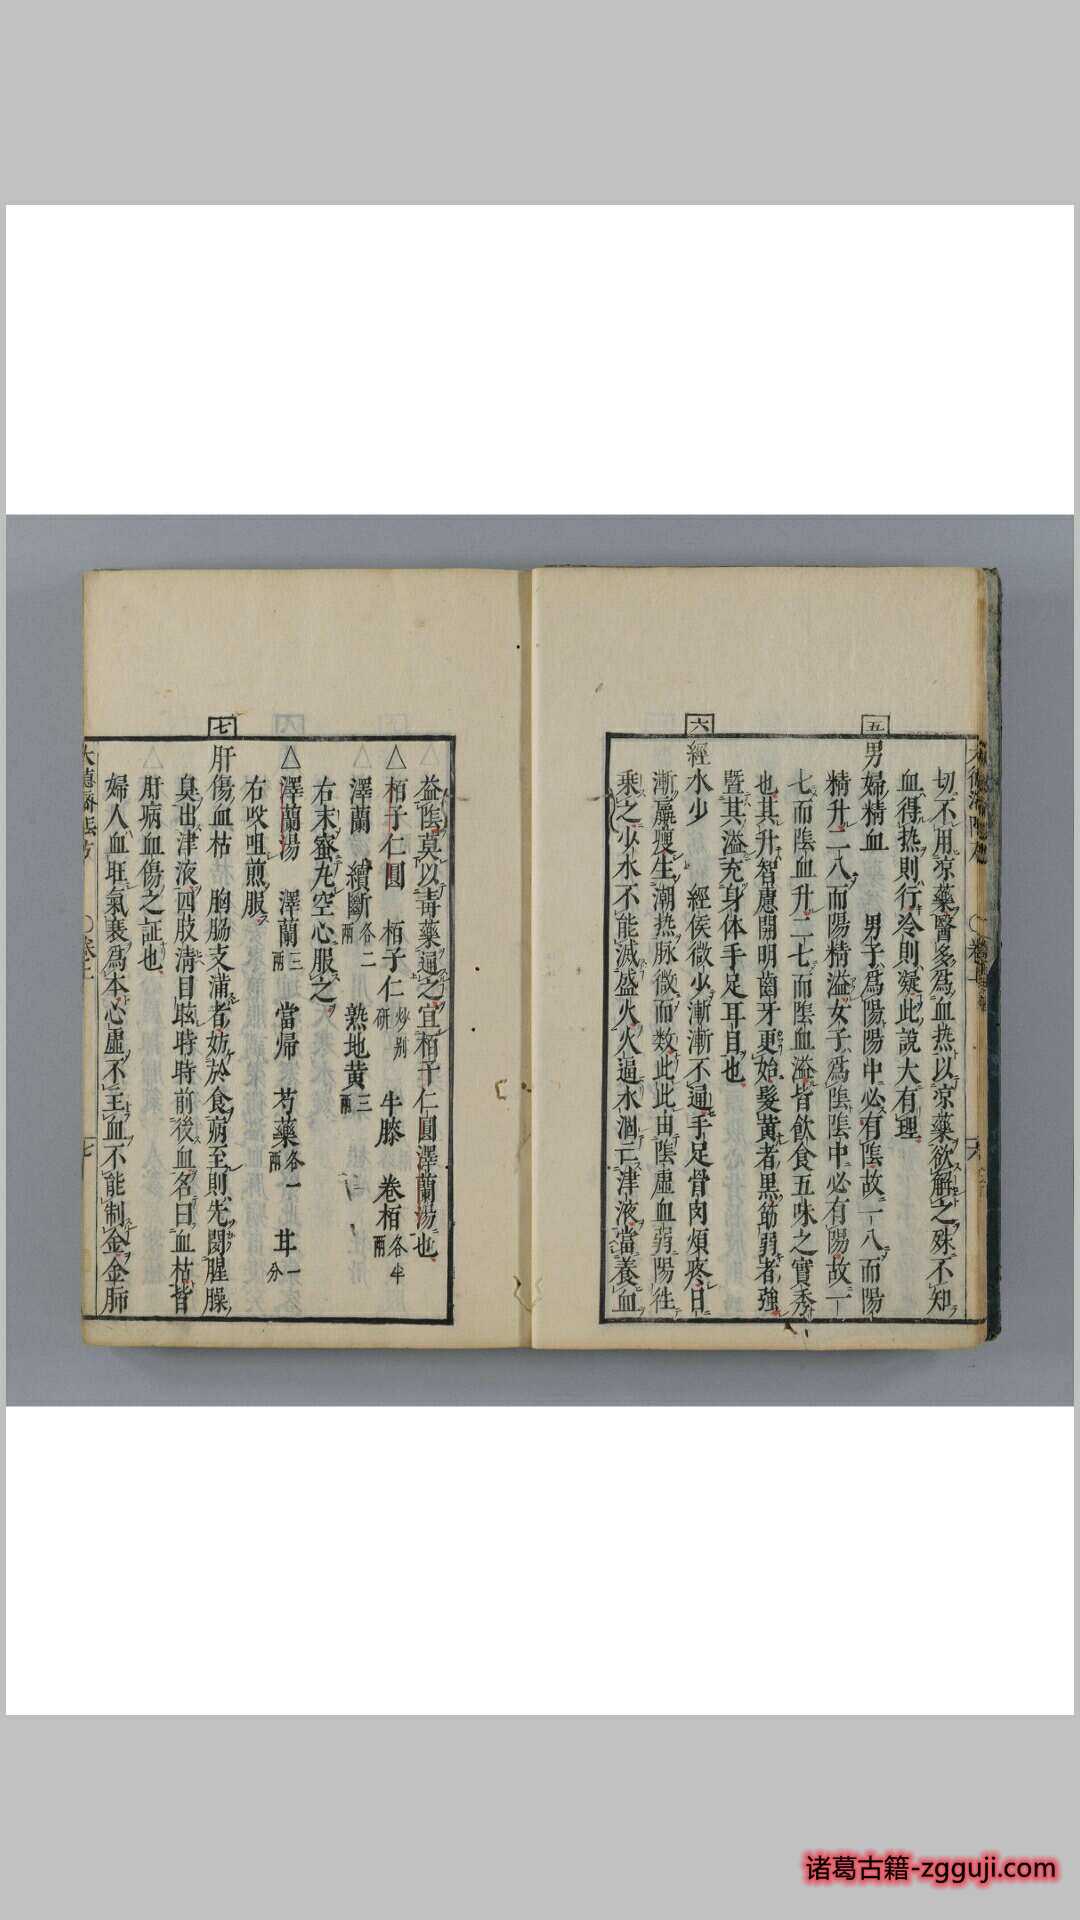 切不用凉藥醫多為血热以凉藥欲解之殊不知
血得热則行冷則凝此說大有理
五
男婦精血　男子為陽陽中必有陰故一八而陽
精升二八而陽精溢女子為陰陰中必有陽故一
七而陰血升二七而陰血溢皆飲食五味之實秀
也其升智慮開明齒牙更始髮黄者黒筋弱者強
暨其溢充身体手足耳目也
六
經水少　經侯微少漸漸不通手足骨肉煩疼日
漸羸瘦生潮热脉微而数此此由陰虚血弱陽徃
乗之少水不能滅盛火火逼水涸亡津液當養血
益陰莫以毒藥通之宜栢子仁圓澤蘭湯也
△栢子仁圓　栢子仁炒别研　牛膝　卷栢各半兩
澤蘭　續斷各二兩　熟地黄三兩
右末蜜丸空心服之
△澤蘭湯　澤蘭三兩　當帰　芍藥各一兩　甘一分
右㕮咀煎服
七
肝傷血枯　胸脇支滿者妨於食病至則先聞腥臊
臭出津液四肢清目眩時時前後血名曰血枯皆
肝病血傷之証也
婦人血旺氣衰為本心虚不主血不能制金金肺
七